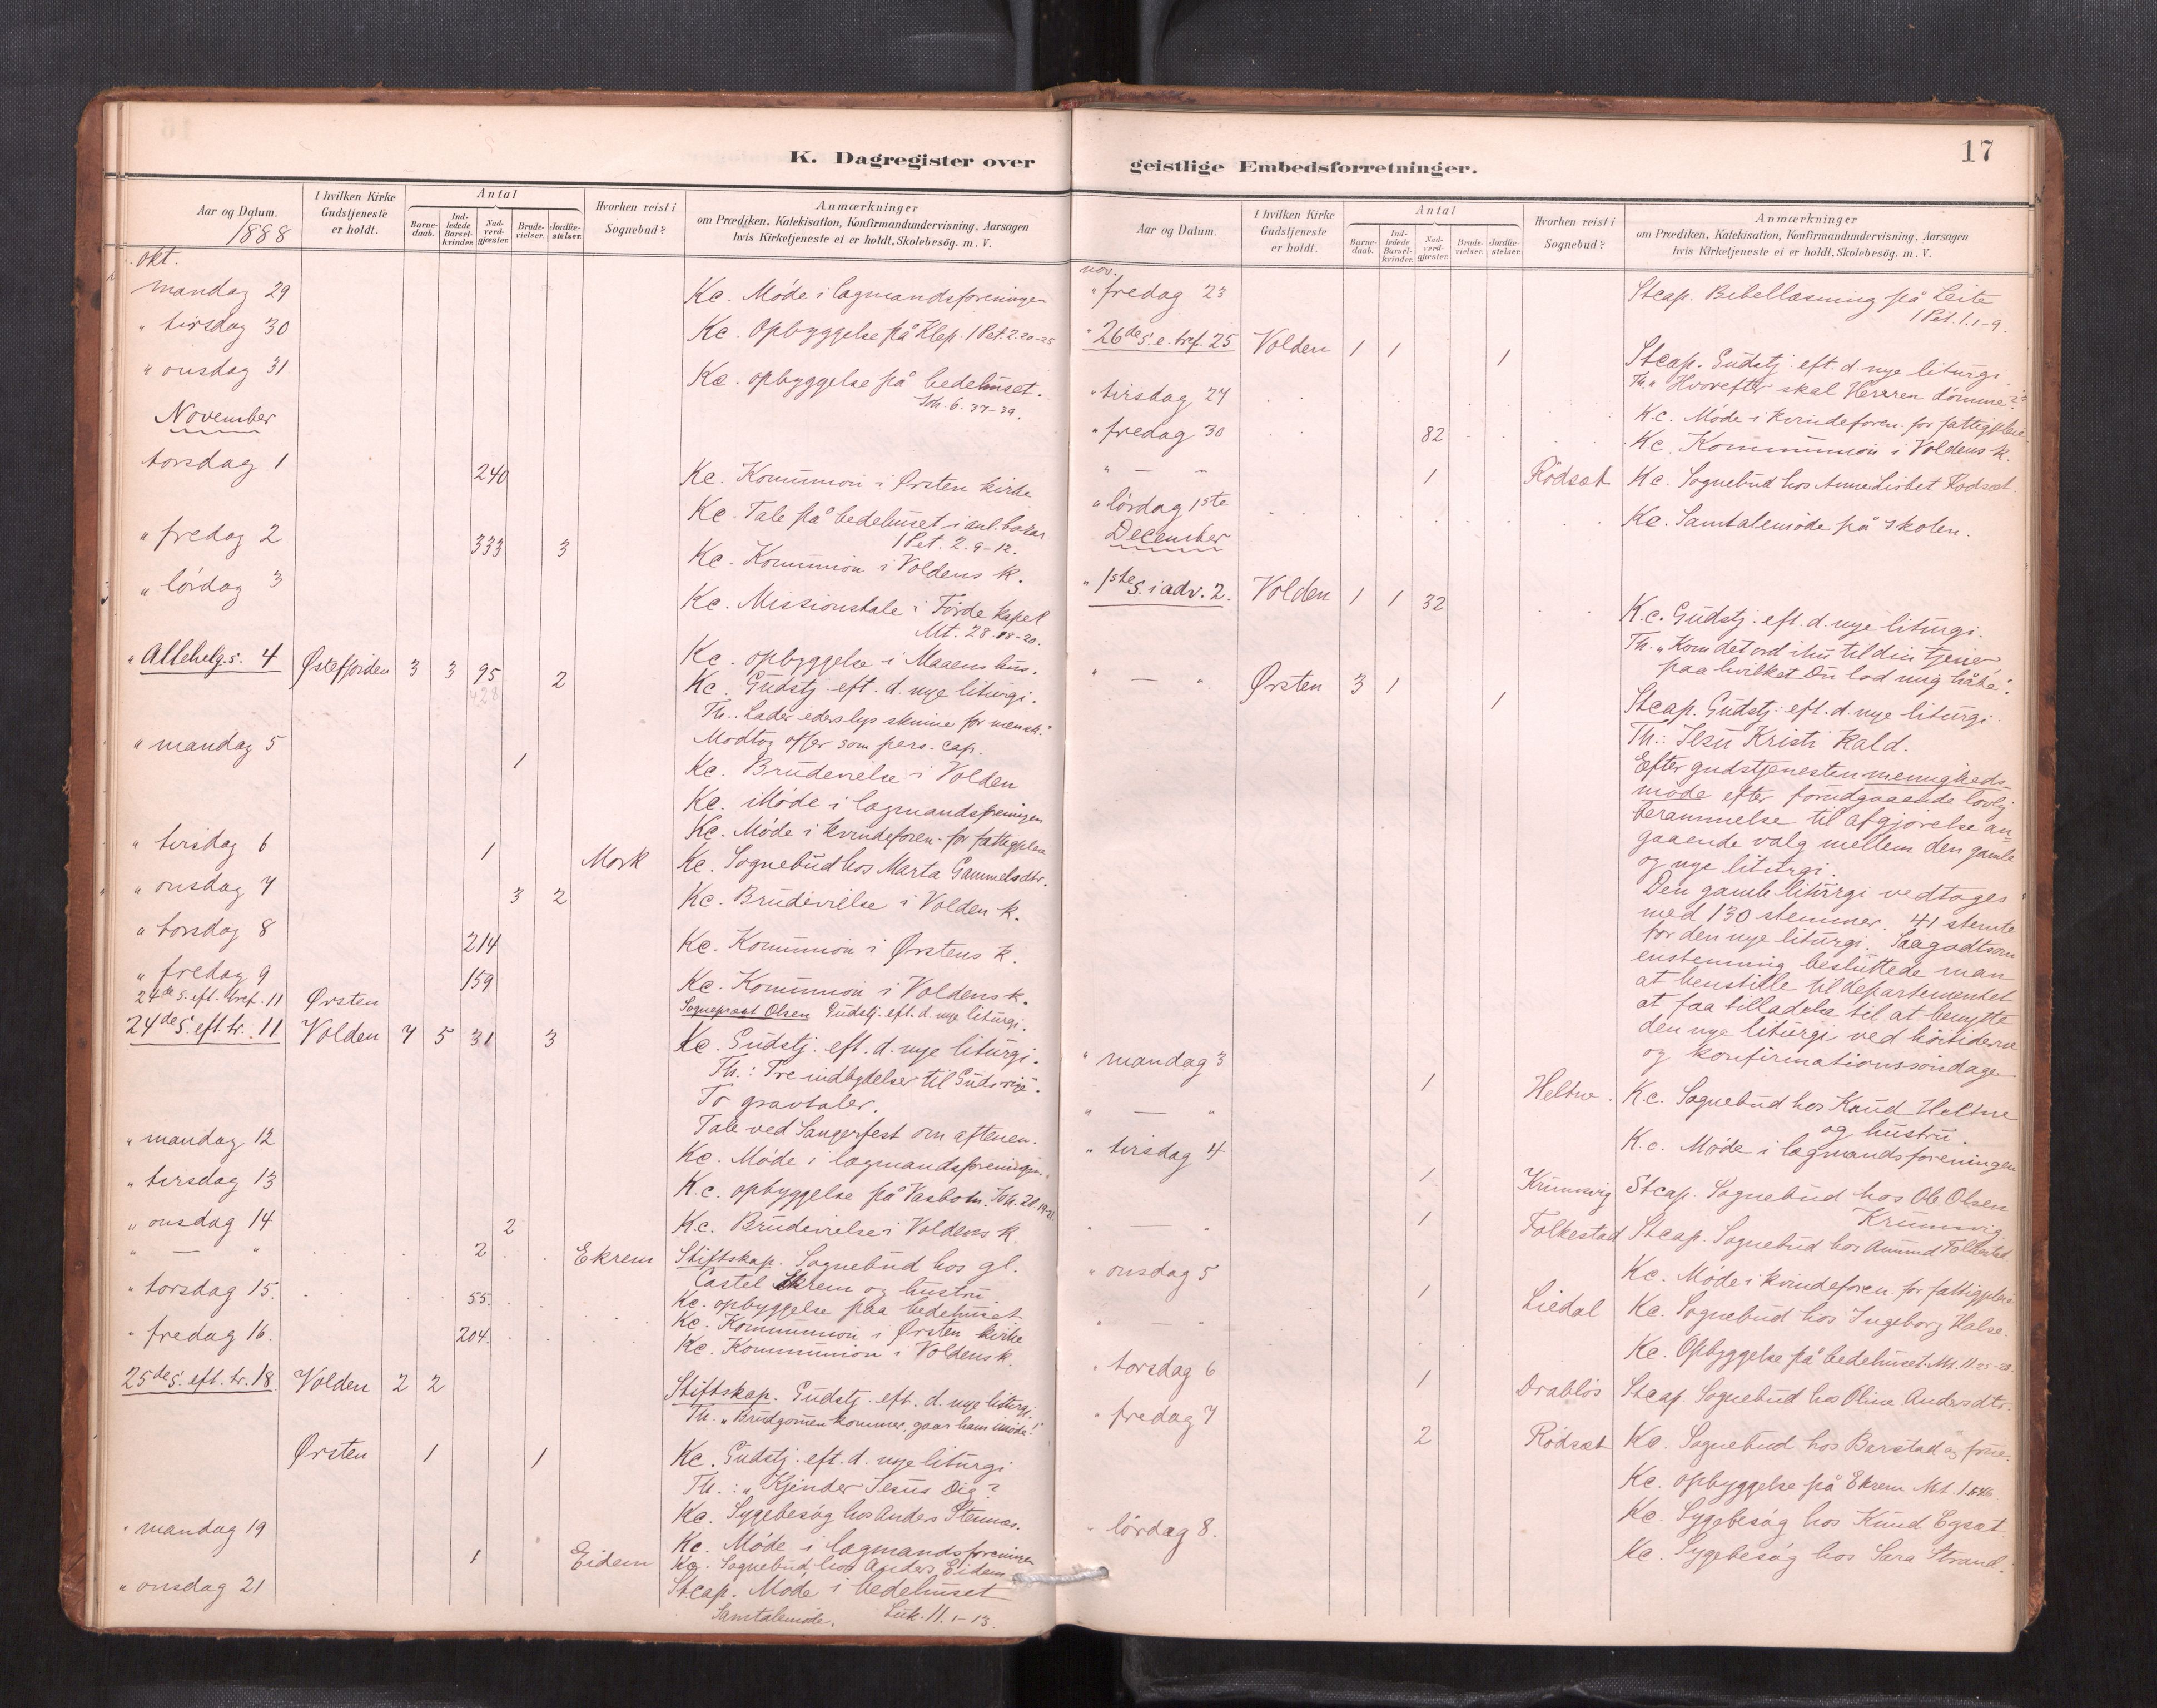 K. Dagregister over
Aar og Datum.
1888
I hvilken Kirke Gudstjeneste er holdt.
Antal
Barne-daab.
Ind-ledede Barsel-kvinder.
Nad-verd-gjæster.
Brude-vielser.
Jordfæ-stelser.
Hvorhen reist i Sognebud?
Anmærkninger
om Prædiken, Katekisation, Konfirmandundervisning, Aarsagen
hvis Kirketjeneste ei er holdt, Skolebesög. m. V.
Okt.
mandag 29 Kc. Möde i lægmandsforeningen
" tirsdag 30 Kc. Opbyggelse på Klep. 1 Pet. 2.20-25
" onsdag 31 Kc. opbyggelse på bedehuset.
Joh. 6. 37-39.
November
torsdag 1 240 Kc. Kommunion i Ørsten kirke
Kc. Tale på bedehuset i anl. basar
1 Pet. 2. 9-12.
" fredag 2 333 3 Kc. Kommunion i Voldens k.
" lördag 3 Kc. Missionstale i Förde kapel
Mt. 28. 18-20.
Kc. opbyggelse i Maaens hus.
" Allehelg.s. 4 Østefjorden 3 3 95 2 Kc. Gudstj. eft. d. nye liturgi.
428
Th.. Lader eders lys skinne for mensk."
Modtog offer som pers. cap.
" mandag 5 1 Kc. Brudevielse i Volden
Kc. Möde i lægmandsforeningen
Kc. Möde i kvindeforen. for fattigpleie
" tirsdag 6 1 Mork Kc. Sognebud hos Marta Gammelsdtr.
" onsdag 7 3 2 Kc. Brudevielse i Volden k.
" torsdag 8 214 Kc. Kommunion i Ørstens k.
" fredag 9 159 Kc. Kommunion i Voldens k.
24de s. eft. tref. 11 Ørsten Sogneprest Olsen Gudstj. eft. d. nye liturgi.
24de s. eft. tr. 11 Volden 7 5 31 3 Kc. Gudstj. eft. d. nye liturgi.
Th.: Tre indbydelser til Guds rige.
To gravtaler.
Tale ved Sangerfest om aftenen.
" mandag 12 Kc. Möde i lægmandsforeningen.
" tirsdag 13 Kc. opbyggelse på Vasbotn. Joh. 20. 19-21.
" onsdag 14 2 Kc. Brudevielse i Voldens k.
" — " 2 Ekrem Stiftskap. Sognebud hos gl.
Castel Ekrem og hustru.
" torsdag 15. 55. Kc. opbyggelse paa bedehuset
Kc. Kommunion i Ørsten kirke
" fredag 16. 204. Kc. Kommunion i Voldens k.
25de s. eft. tr. 18 Volden 2 2 Stiftskap. Gudstj. eft. d. nye liturgi.
Th. "Brudgommen kommer, gaar ham imöde!"
Ørsten 1 1 Kc. Gudstj. eft. d. nye liturgi
Th.: "Kjender Jesus Dig?
Kc. Sygebesög hos Anders Stennes.
" mandag 19 Kc. Möde i lægmandsforeningen
1 Eidem Kc. Sognebud hos Anders Eidem.
" onsdag 21 Stcap. Möde i bedehuset
Samtalemöde. Luk. 11. 1-13.
geistlige Embedsforretninger.
17
Aar og Datum.
I hvilken Kirke Gudstjeneste er holdt.
Antal
Barne-daab.
Ind-ledede Barsel-kvinder.
Nad-verd-gjæster.
Brude-vielser.
Jordfæ-stelser.
Hvorhen reist i Sognebud?
Anmærkninger
om Prædiken, Katekisation, Konfirmandundervisning, Aarsagen
hvis Kirketjeneste ei er holdt, Skolebesög. m. V.
nov.
" fredag 23 Stcap. Bibellæsning på Leite
1 Pet. 1. 1-9.
" 26de s. e. tref. 25 Volden 1 1 1 Stcap. Gudstj. eft. d. nye liturgi.
Th. "Hvorefter skal Herren dömme?"
" tirsdag 27 Kc. Möde i kvindeforen. for fattigpleie
" fredag 30 82 Kc. Kommunion i Voldens k.
" — " 1 Rödsæt Kc. Sognebud hos Anne Lisbet Rodsæt.
" lördag 1ste Kc. Samtalemöde på skolen.
December
" 1ste s. i adv. 2. Volden 1 1 32 Kc. Gudstj. eft. d. nye liturgi.
Th. "Kom det ord ihu til din tjener,
paa hvilket Du lod mig håbe".
" — " Ørsten 3 1 1 Stcap. Gudstj. eft. d. nye liturgi.
Th.: Jesu Kristi kald.
Efter gudstjenesten menigheds-
möde efter forudgaaende lovlig
berammelse til afgjörelse an-
gaaende valg mellem den gamle
og nye liturgi.
Den gamle liturgi vedtoges
med 130 stemmer. 41 stemte
for den nye liturgi. Saagodtsom
enstemmig besluttede man
at henstille til departementet
at faa tilladelse til at benytte
den nye liturgi ved höitiderne
og konfirmationssöndage
" mandag 3 1 Heltne. Kc. Sognebud hos Knud Heltne
og hustru.
" — " Kc. Möde i lægmandsforeningen
" tirsdag 4 1 Krumsvig Stcap. Sognebud hos Ole Olsen
Krumsvig
" — " 1 Folkestad Stcap. Sognebud hos Amund Folkestad.
" onsdag 5 Kc. Möde i kvindeforen. for fattigpleie
1 Liedal Kc. Sognebud hos Ingeborg Halse.
" — " Kc. Opbyggelse på bedehuset. Mt. 11. 25-28.
" torsdag 6 1 Drablös Stcap. Sognebud hos Oline Andersdtr.
" fredag 7 2 Rödsæt Kc. Sognebud hos Barstad og frue.
Kc. opbyggelse på Ekrem
Kc. Sygebesög hos Knud Egset.
" lördag 8. Kc. Sygebesög hos Sara Strand.